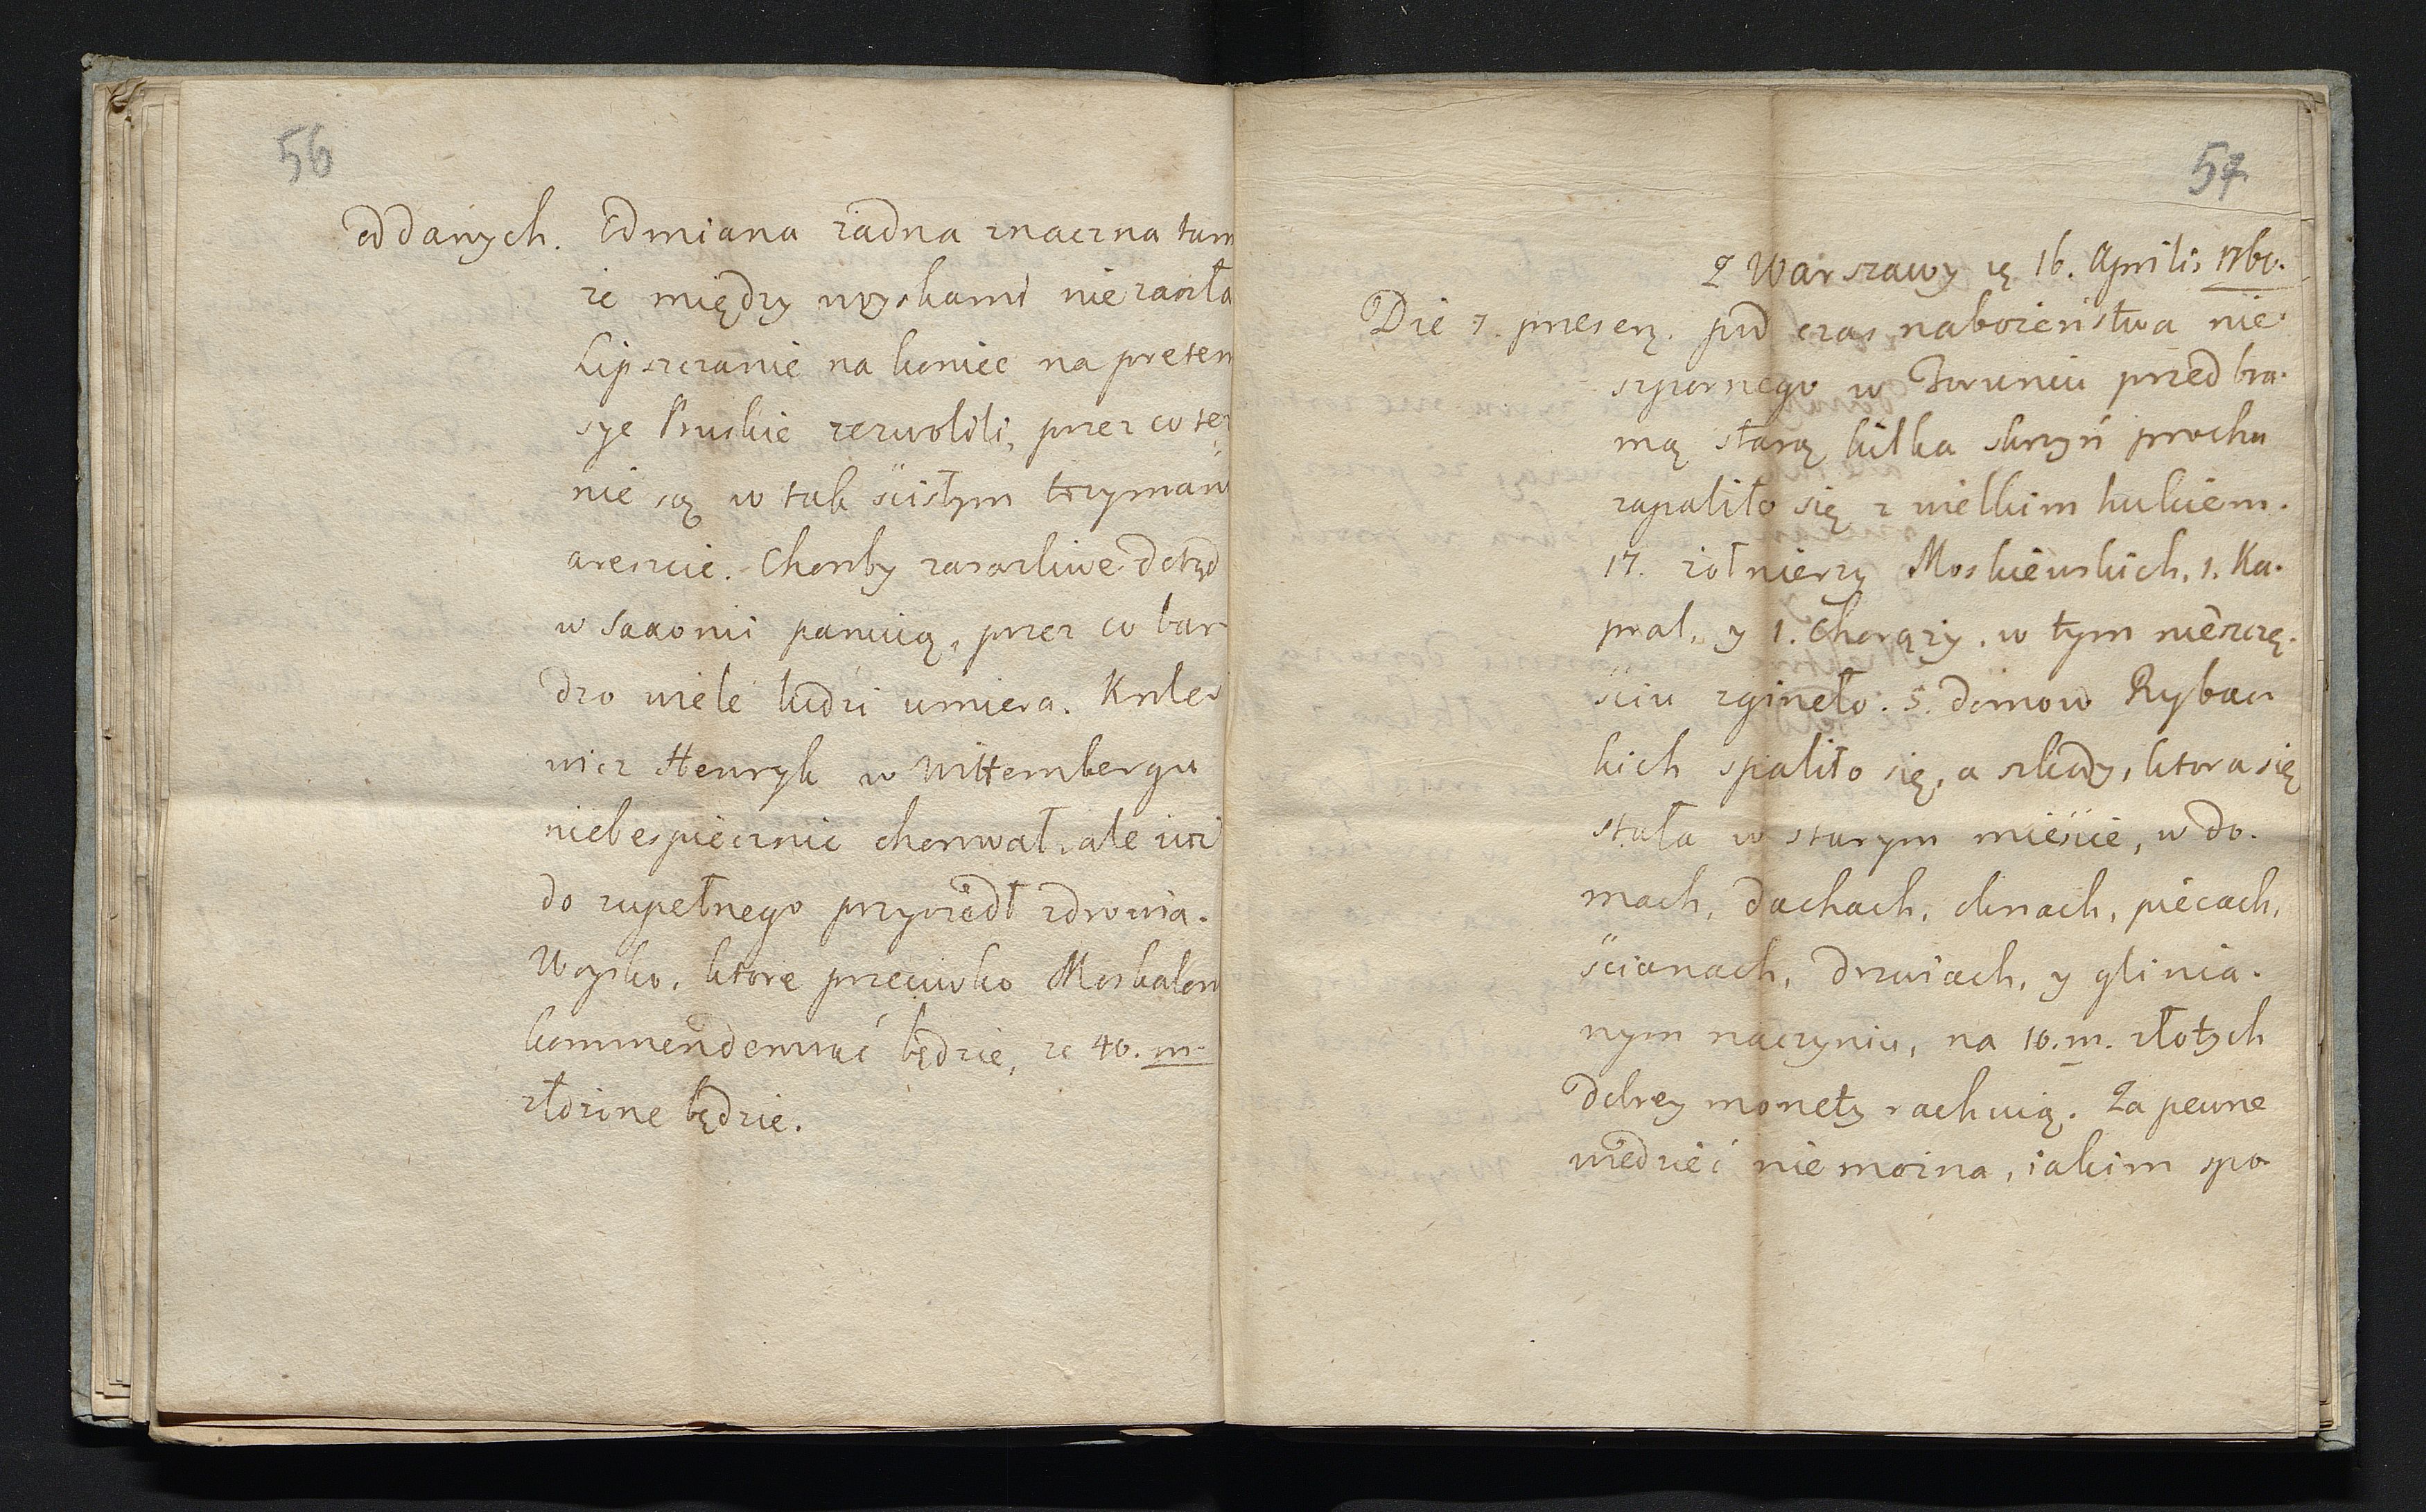 56
oddanych. Odmiana żadna znaczna tam
że między woyskami nie zaszła
Lipszczanie na koniec na preten
sye Pruskie zezwolili, przez co tez
nie są w tak scisłym trzymani
areszcie. Choroby zarazliwe dotąd
w Saxonii panuią, przez co bar
dzo wiele ludzi umiera. Krole
wicz Henryk w Wittembergu
niebespiecznie chorował, ale iuż
do zupełnego przyszedł zdrowia.
Woysko, ktore przeciwko Moskalom
kommenderować będzie, ze 40. m.
złożone będzie.
57
Z Warszawy 16. Aprilis 1760.
Die 7. presen. pod czas nabożeństwa nie
szpornego w Toruniu przed bra.
mą starą kilka skrzyń prochu
zapaliło się z wielkim hukiem.
17. żołnierzy Moskiewskich, 1. Ka.
pral, y 1. Chorąży, w tym nieszczę.
sciu zgineło. 5. domow Rybac
kich spaliło się, a szkody, ktora się
stała w starym mieście, w do.
mach, dachach, oknach, piecach,
ścianach, drzwiach, y glinia.
nym naczyniu, na 10. m. złotych
dobrey monety rachuią. Za pewne
wiedzieć nie można, iakim spo